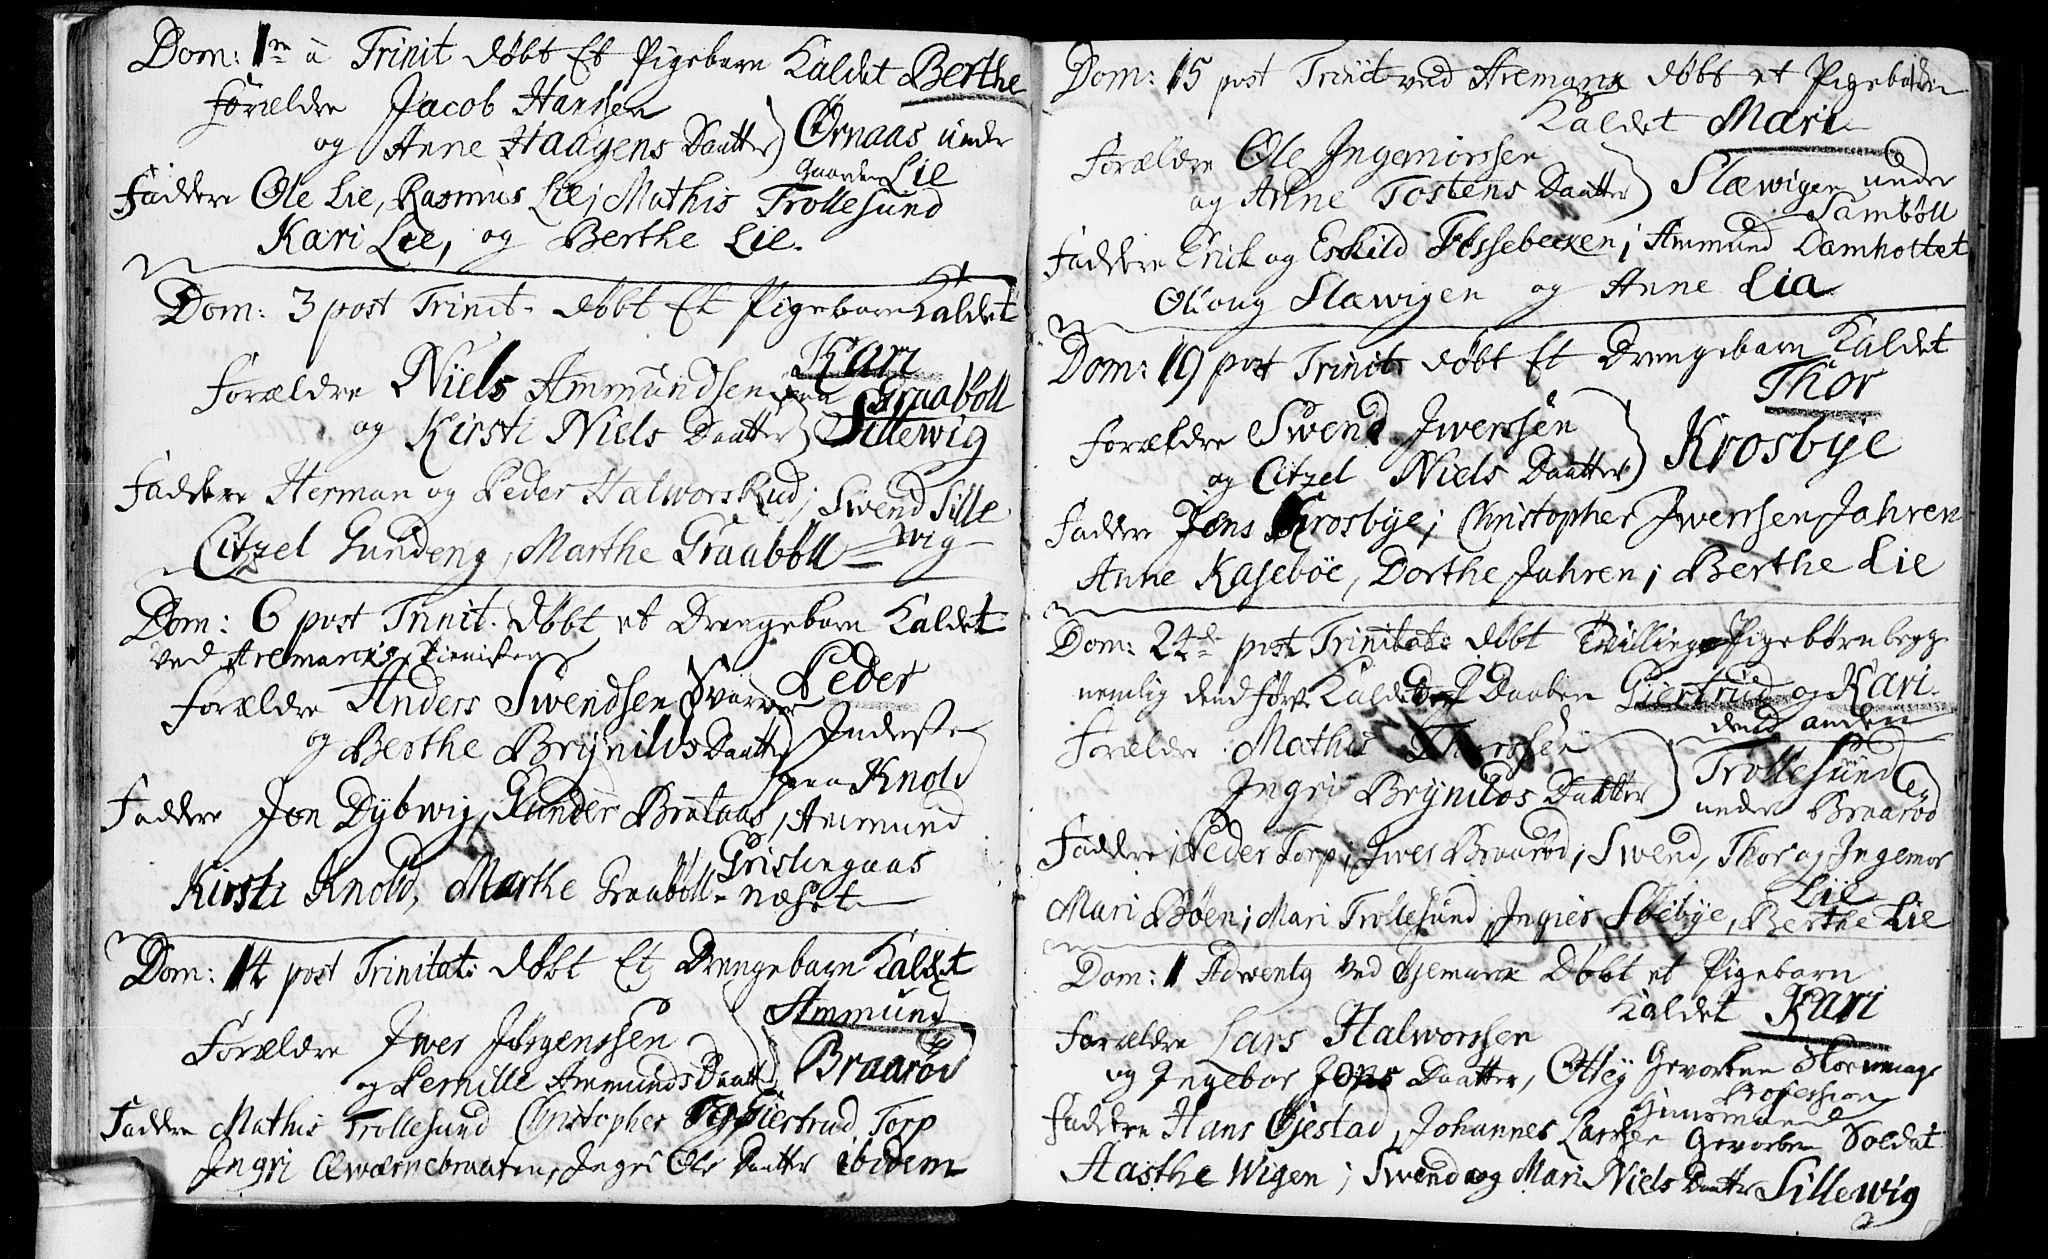 Dom: 1me à Trinit døbt Et Pigebarn Kaldet Berthe
Forældre Jacob Hanssen
og Anne Haagens Daatter Ørnaas under
Gaarden Lie
Faddere Ole Lie, Rasmus Lie; Mathis Trollesund
Kari Lie, og Berthe Lie.
Dom: 3 post Trinit. døbt Et Pigebarn Kaldet
Kari
Forældre Niels Ammundsen Graabøll
og Kirsti Niels Daatter Sillewig
Faddere Herman og Peder Halworsrud; Swend Sille
Citzel Gundeng, Marthe Graabøll wig
Dom: 6 post Trinit. døbt et Drengebarn Kaldet
ved Aremarks
Peder
Forældre Anders Swendsen
og Berthe Brynilds Daatter Inderste
paa Knold
Faddere Jon Dybwig, Gunder Brataas, Ammund
Gristingaas
Kirsti Knold, Marthe Graabøll næset
Dom: 14 post Trinitat: døbt Et Drengebarn Kaldet
Ammund
Forældre Iwer Jørgenssen
og Pernille Ammunds Daatter Braarød
Faddere Mathis Trollesund Christopher Giertrud Torp
Ingri Qwærnebraaten, Ingri Ols Daatter ibidem
Dom: 15 post Trinit ved Aremark døbt et Pigebarn
Kaldet Mari
Forældre Ole Ingemorssen
og Anne Tostens Daatter Slæwigen under
Tambøll
Faddere Erick og Eskild Fossebecken; Ammund Damholtet
Olloug Slæwigen og Anne Lia
Dom: 19 post Trinit: døbt Et Drengebarn Kaldet
Thor
Forældre Swend Iwerssen
og Citzel Niels Daatter Krosbye
Faddere Jens Krosbye; Christopher Iwerssen Jahren
Anne Kasebøe, Dorthe Jahren; Berthe Lie
Dom: 24de post Trinitat: døbt Tvillinge Pigebørn begge
nemlig dend først Kaldet Daaben Giertrud og Kari
dend anden
Forældre Mathis Thorssen
Ingri Brynilds Daatter Trollesund
under Braarød
Faddere Peder Torp, Iwer Braarød; Swend, Thor og Ingemor
Lie
Mari Bøen; Mari Trollesund, Ingier Søebye, Berthe Lie
Dom: 1 Adwenty ved Øjemark Døbt et Pigebarn
Kaldet Kari
Forældre Lars Halworssen
og Ingebor Jons Daatter, Otteg Gevorben Skoemager
Profession
Huusmand
Faddere Hans Øjestad, Johannes Larsen Gevorben Soldat
Aasthe Wigen; Swend og Mari Niels Daatter Sillewig